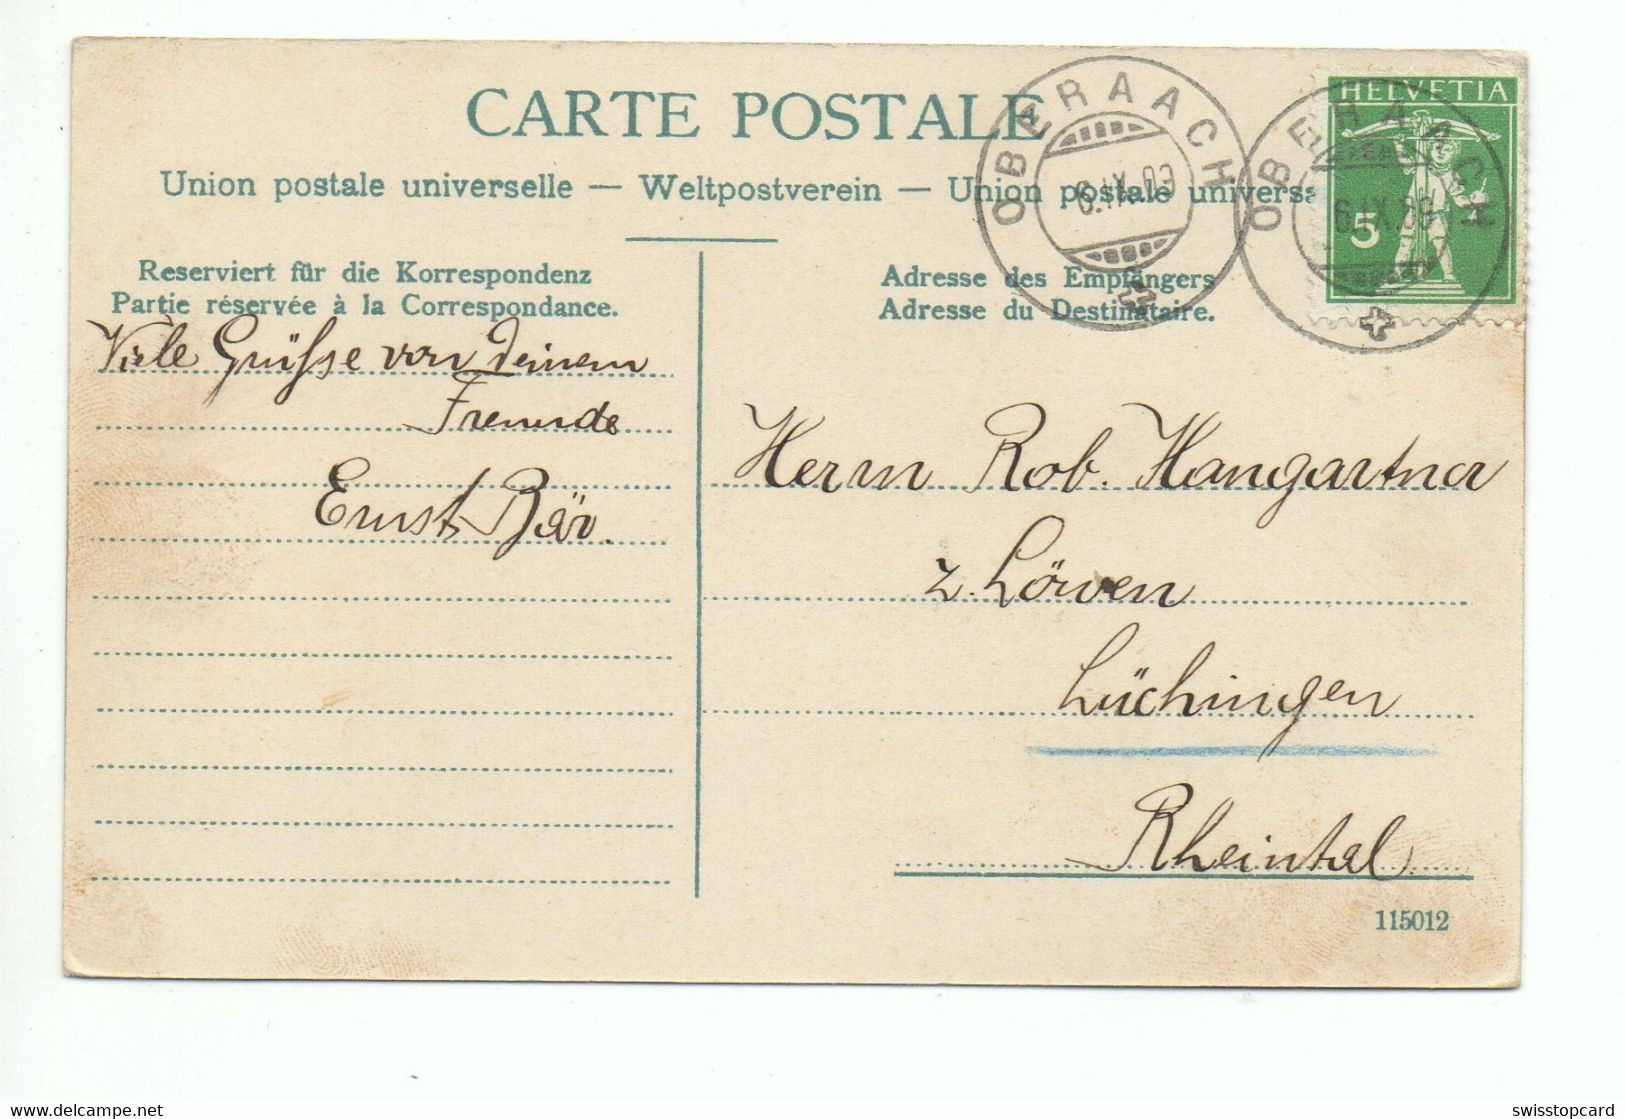 CARTE POSTALE
Union postale universelle — Weltpostverein — Union postale universe
HELVETIA
5
OBERAACH
6.IX.09
OBERAACH
6.IX.09
Reserviert für die Korrespondenz
Partie réservée à la Correspondance.
Adresse des Empfängers
Adresse du Destinataire.
Viele Grüsse von Deinem
Freunde
Ernst Bär.
Herrn Rob. Hangartner
z. Löwen
Lüchingen
Rheintal
115012
swisstopcard